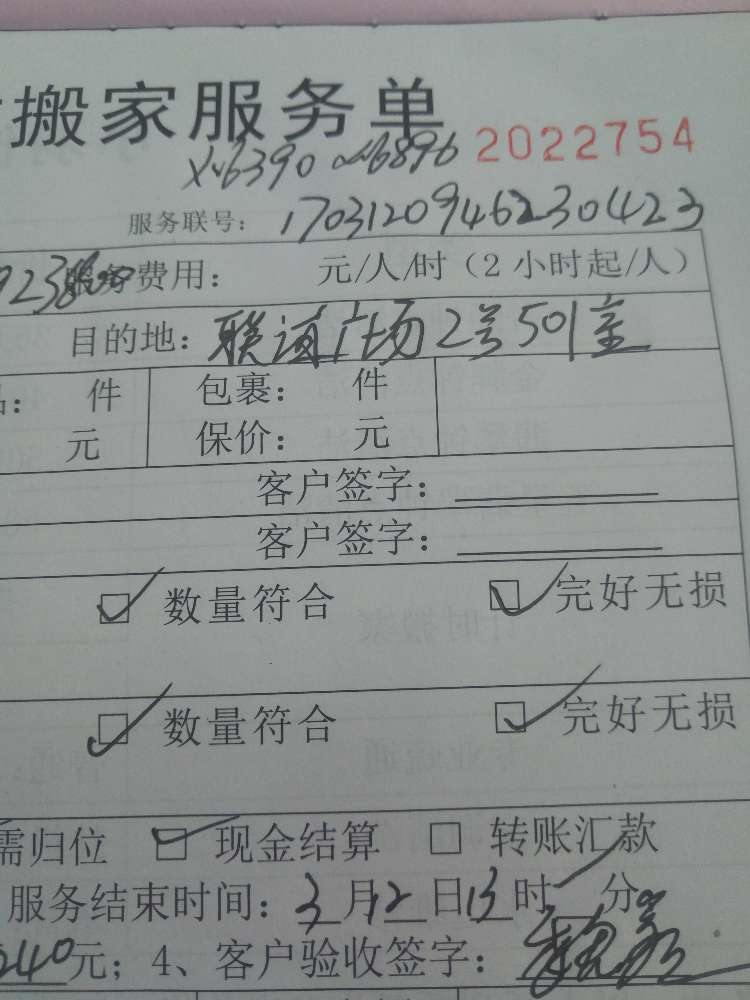 搬家服务单
2022754
服务联号：17031209462230423
服务费用： 元/人/时（2小时起/人）
目的地：联谊广场2号501室
件 包裹： 件
元 保价： 元
客户签字：
客户签字：
数量符合 完好无损
数量符合 完好无损
需归位 现金结算 转账汇款
服务结束时间：3月12日13时 分。
240元；4、客户验收签字：